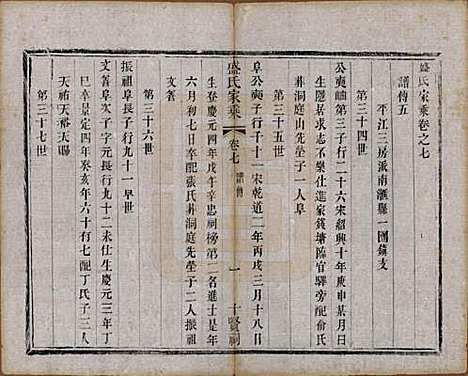 盛氏家乘卷之七
譜傳五
平江三房派南滙縣一團鎮支
第三十四世
公夷岫第三子行二十六宋紹興十年庚申某月日
生隱居求志不樂仕進家錢塘臨官驛旁配俞氏
葬洞庭山先塋子一人阜
第三十五世
阜公夷子行千十一宋乾道二年丙戌三月十八日
盛氏家乘
卷七
譜傳
一
十賢祠
生登慶元四年戊午辛忠祠榜第二名進士是年
六月初七日卒配張氏葬洞庭先塋子二人振祖
文著
第三十六世
振祖阜長子行九十一早世
文著阜次子行丁長行九十二未仕生慶元三年丁
巳卒景定四年癸亥年六十有七配丁氏子三人
天祐天青天賜
第三十七世